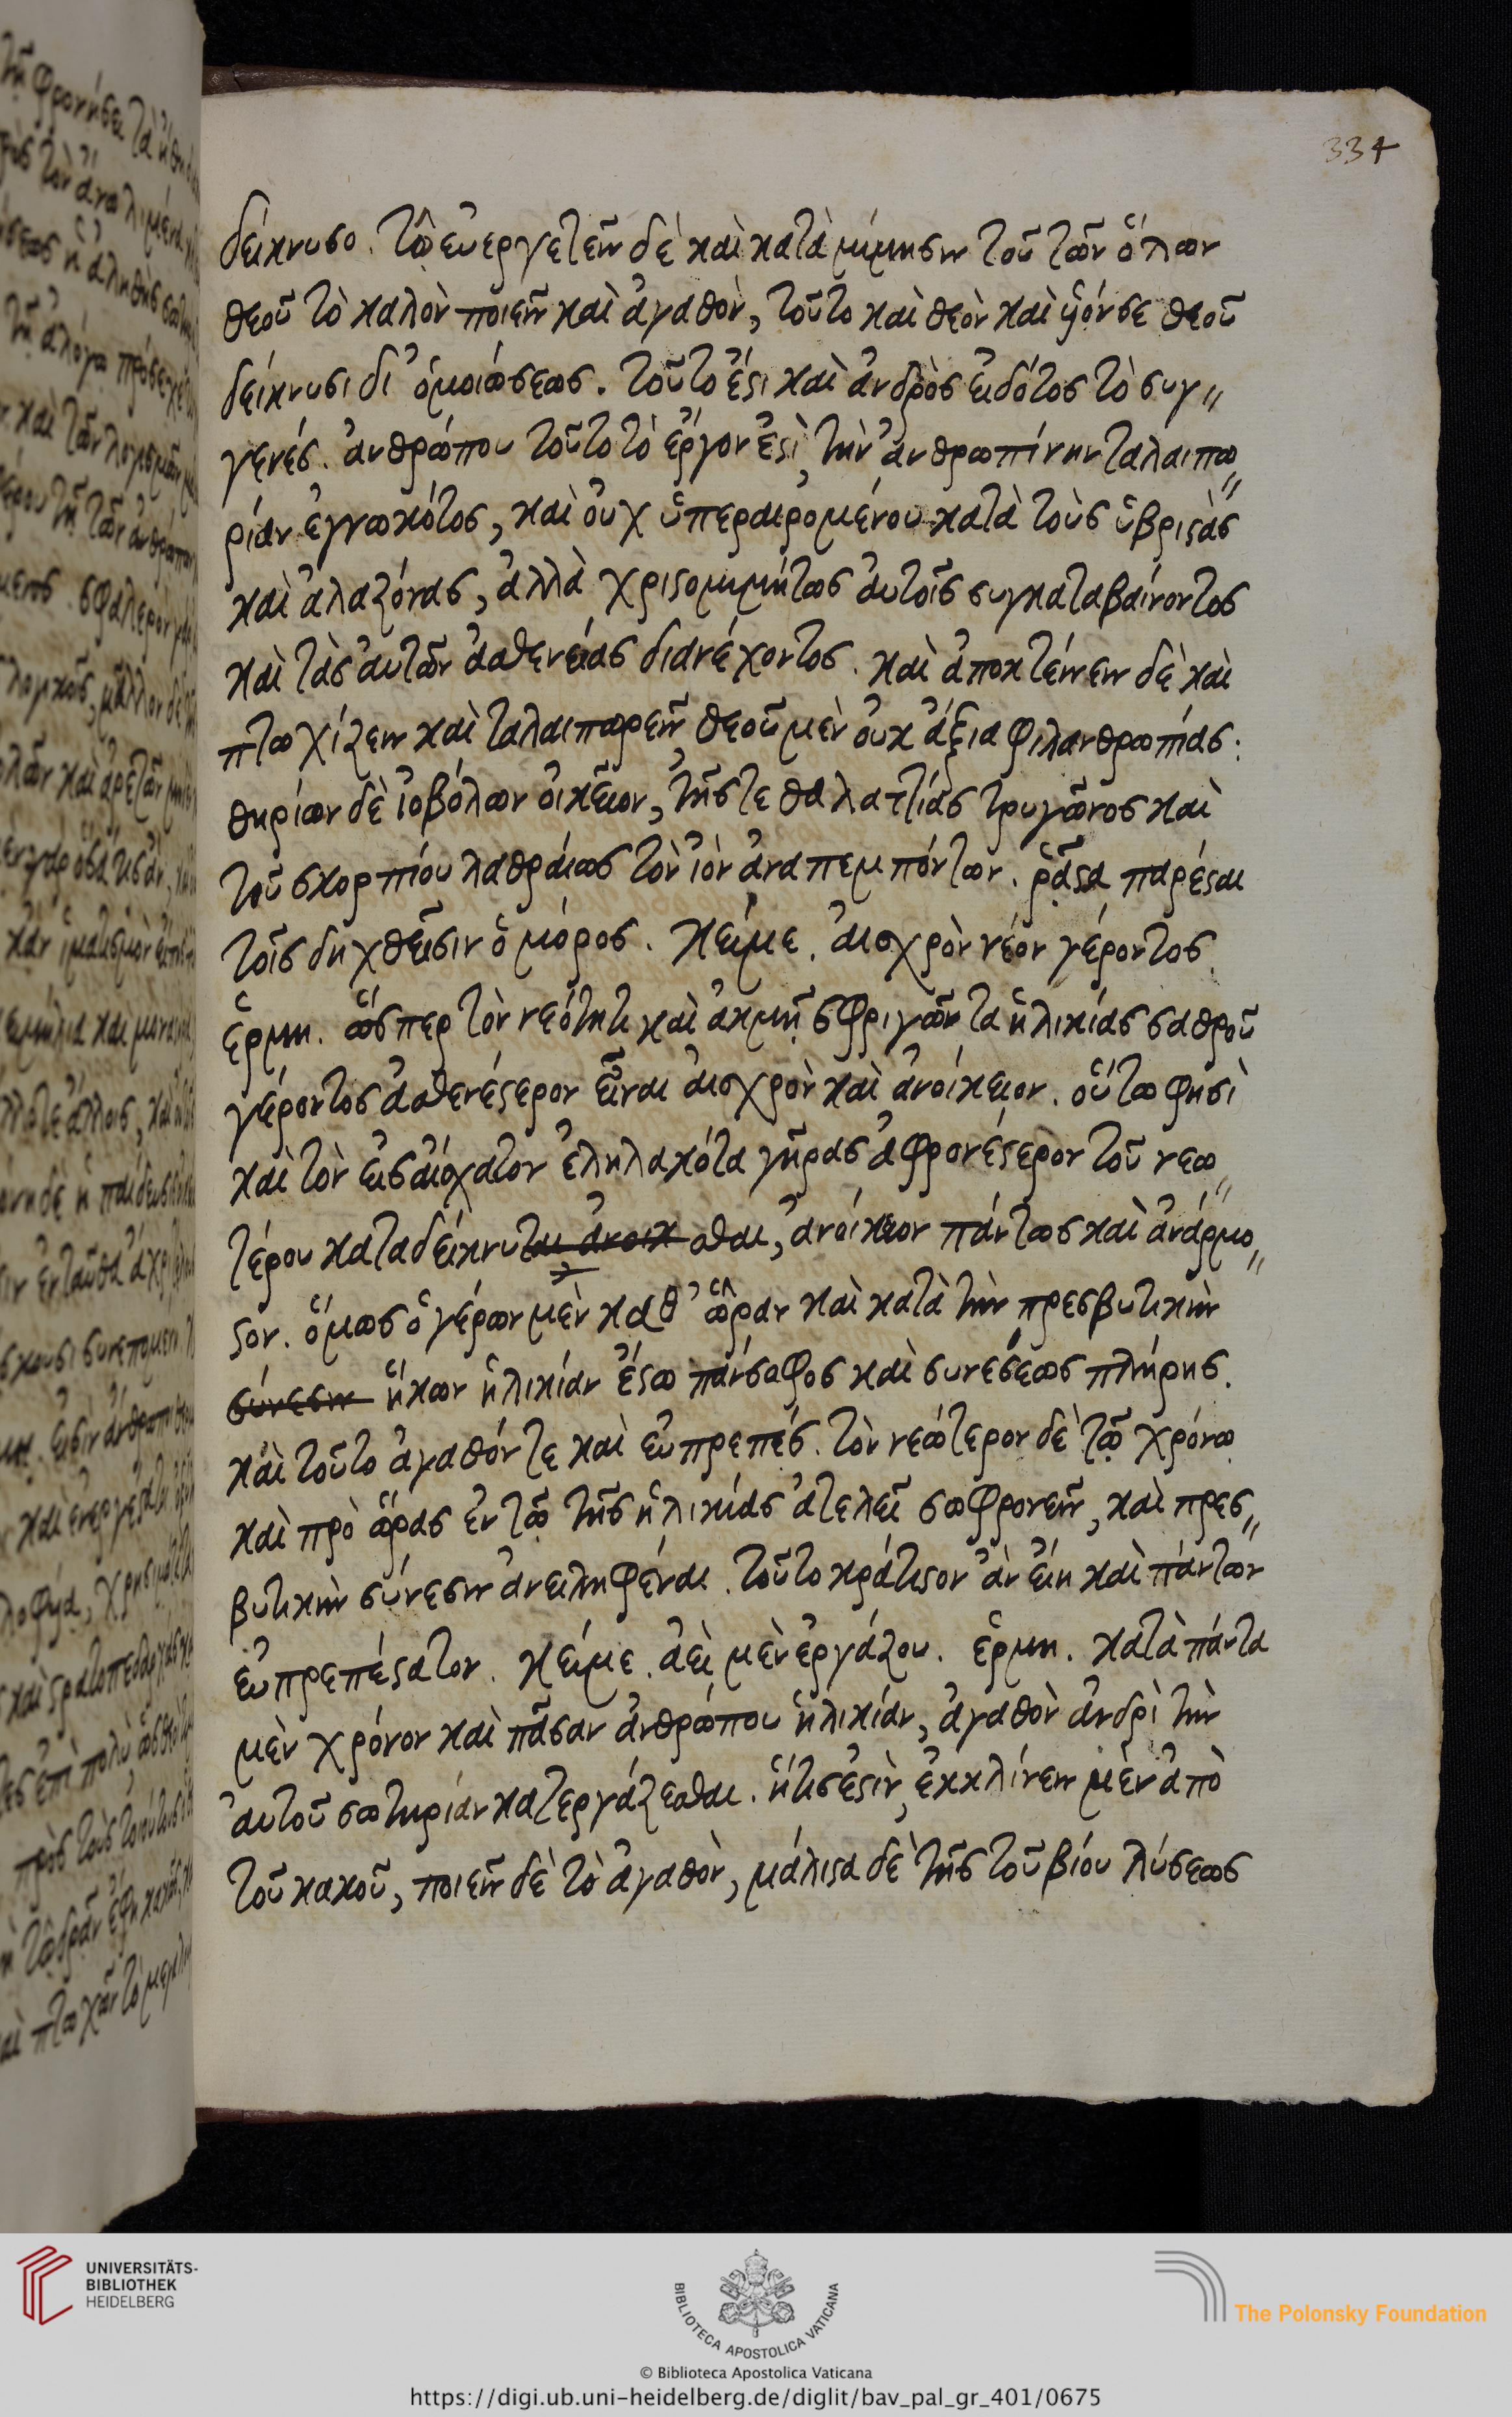 334
δείκνυσο. τῶ εὐεργετεῖν δὲ καὶ κατὰ μίμησιν τοῦ τῶν ὅλων
θεοῦ τὸ καλὸν ποιεῖν καὶ ἀγαθὸν, τοῦτο καὶ θεὸν καὶ ὑιόν σε θεοῦ
δείκνυσι δι᾽ ὁμοιώσεως. τοῦτο ἐστι καὶ ἀνδρὸς εἰδότος τὸ συγ〃
γενές. ἀνθρώπου τοῦτο τὸ ἔργον ἐστὶ, τὴν ἀνθρωπίνην ταλαιπω〃
ρίαν ἐγνωκότος, καὶ οὐχ ὑπεραιρομένου κατὰ τοὺς ὑβριστὰς
καὶ ἀλαζόνας, ἀλλὰ χριστομιμήτως ἀυτοῖς συγκαταβαίνοντος
καὶ τὰς ἀυτῶν ἀσθενείας διανέχοντος. καὶ ἀποκτείνειν δὲ καὶ
πτωχίζειν καὶ ταλαιπωρεῖν, θεοῦ μὲν ὀυκ ἄξια φιλανθρωπίας:
θηρίων δὲ ἰοβόλων ὀικεῖον, τῆς τε θαλαττίας τρυγῶνος καὶ
τοῦ σκορπίου λαθραίως τὸν ἰὸν ἀναπεμπόντων. ῥᾷστα παρέσται
τοῖς δηχθεῖσιν ὁ μόρος. κείμε. ἀισχρὸν νέον γέροντος
ἑρμη. ὥσπερ τὸν νεότητι καὶ ἀκμῇ σφριγῶντα ἡλικίας σαθροῦ
γέροντος ἀσθενέστερον εἶναι ἀισχρὸν καὶ ἀνοίκειον. οὕτω φησὶ
καὶ τὸν εἰς ἔσχατον ἐληλακότα γῆρας ἀφρονέστερον τοῦ νεω〃
τέρου καταδείκνυται ἀνοικ σθαι, ἀνοίκειον πάντως καὶ ἀνάρμο〃
στον. ὅμως ὁ γέρων μὲν καθ᾽ ὥραν καὶ κατὰ τὴν πρεσβυτικὴν
σύνεσιν ἥκων ἡλικίαν ἔστω πάνσοφος καὶ συνέσεως πλήρης.
καὶ τοῦτο ἀγαθόν τε καὶ εὐπρεπές. τὸν νεώτερον δὲ τῷ χρόνῳ
καὶ πρὸ ὥρας ἐν τῷ τῆς ἡλικίας ἀτελεῖ σωφρονεῖν, καὶ πρεσ〃
βυτικὴν σύνεσιν ἀνειληφέναι. τοῦτο κράτιστον ἂν εἴη καὶ πάντων
εὐπρεπέστατον. κείμε. ἀεὶ μὲν ἐργάζου. ἑρμη. κατὰ πάντα
μὲν χρόνον καὶ πᾶσαν ἀνθρώπου ἡλικίαν, ἀγαθὸν ἀνδρὶ τὴν
ἀυτοῦ σωτηρίαν κατεργάζεσθαι. ἥτις ἐστὶν, ἐκκλίνειν μὲν ἀπὸ
τοῦ κακοῦ, ποιεῖν δὲ τὸ ἀγαθὸν, μάλιστα δὲ τῆς τοῦ βίου λύσεως
UNIVERSITÄTS-
BIBLIOTHEK
HEIDELBERG
BIBLIOTECA APOSTOLICA VATICANA
The Polonsky Foundation
© Biblioteca Apostolica Vaticana
https://digi.ub.uni-heidelberg.de/diglit/bav_pal_gr_401/0675